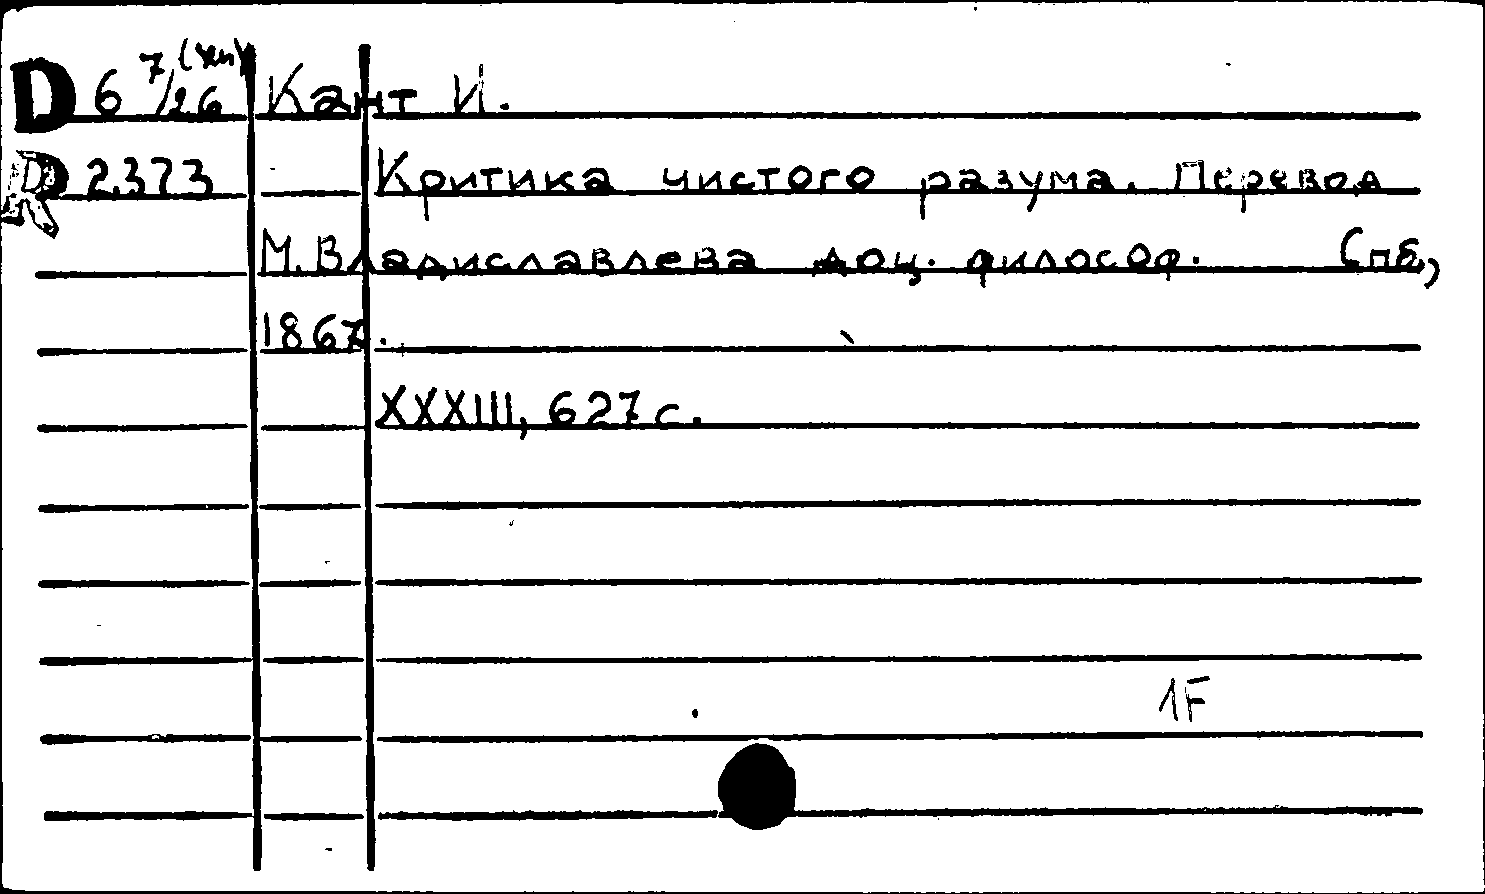 D 6 7/26 Кант И.
D 2373 Критика чистого разума. Перевод
М. Владиславлева доц. философ. Спб.,
1867.
XXXIII, 627 с.
1F